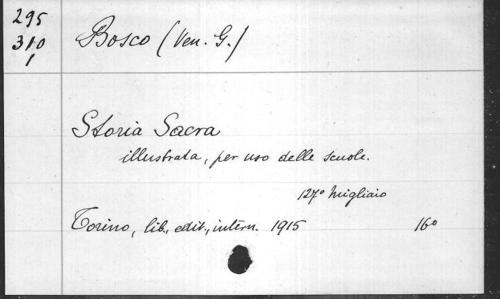 295
310
1
Bosco (Ven. G.)
Storia Sacra
illustrata, per uso delle scuole.
127º Migliaio
Torino, lib. edit. intern. 1915 16º